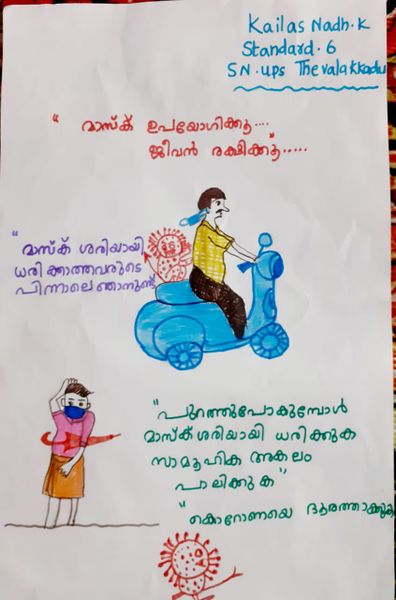 Kailas Nadh.K
Standard.6
SN.ups Thevalakkadu
" മാസ്ക് ഉപയോഗിക്കൂ....
ജീവൻ രക്ഷിക്കൂ".....
" മാസ്ക് ശരിയായി
ധരിക്കാത്തവരുടെ
പിന്നാലെ ഞാനുണ്ട്
"പുറത്തുപോകുമ്പോൾ
മാസ്ക് ശരിയായി ധരിക്കുക
സാമൂഹിക അകലം
പാലിക്കുക"
"കൊറോണയെ ദൂരത്താക്കുക